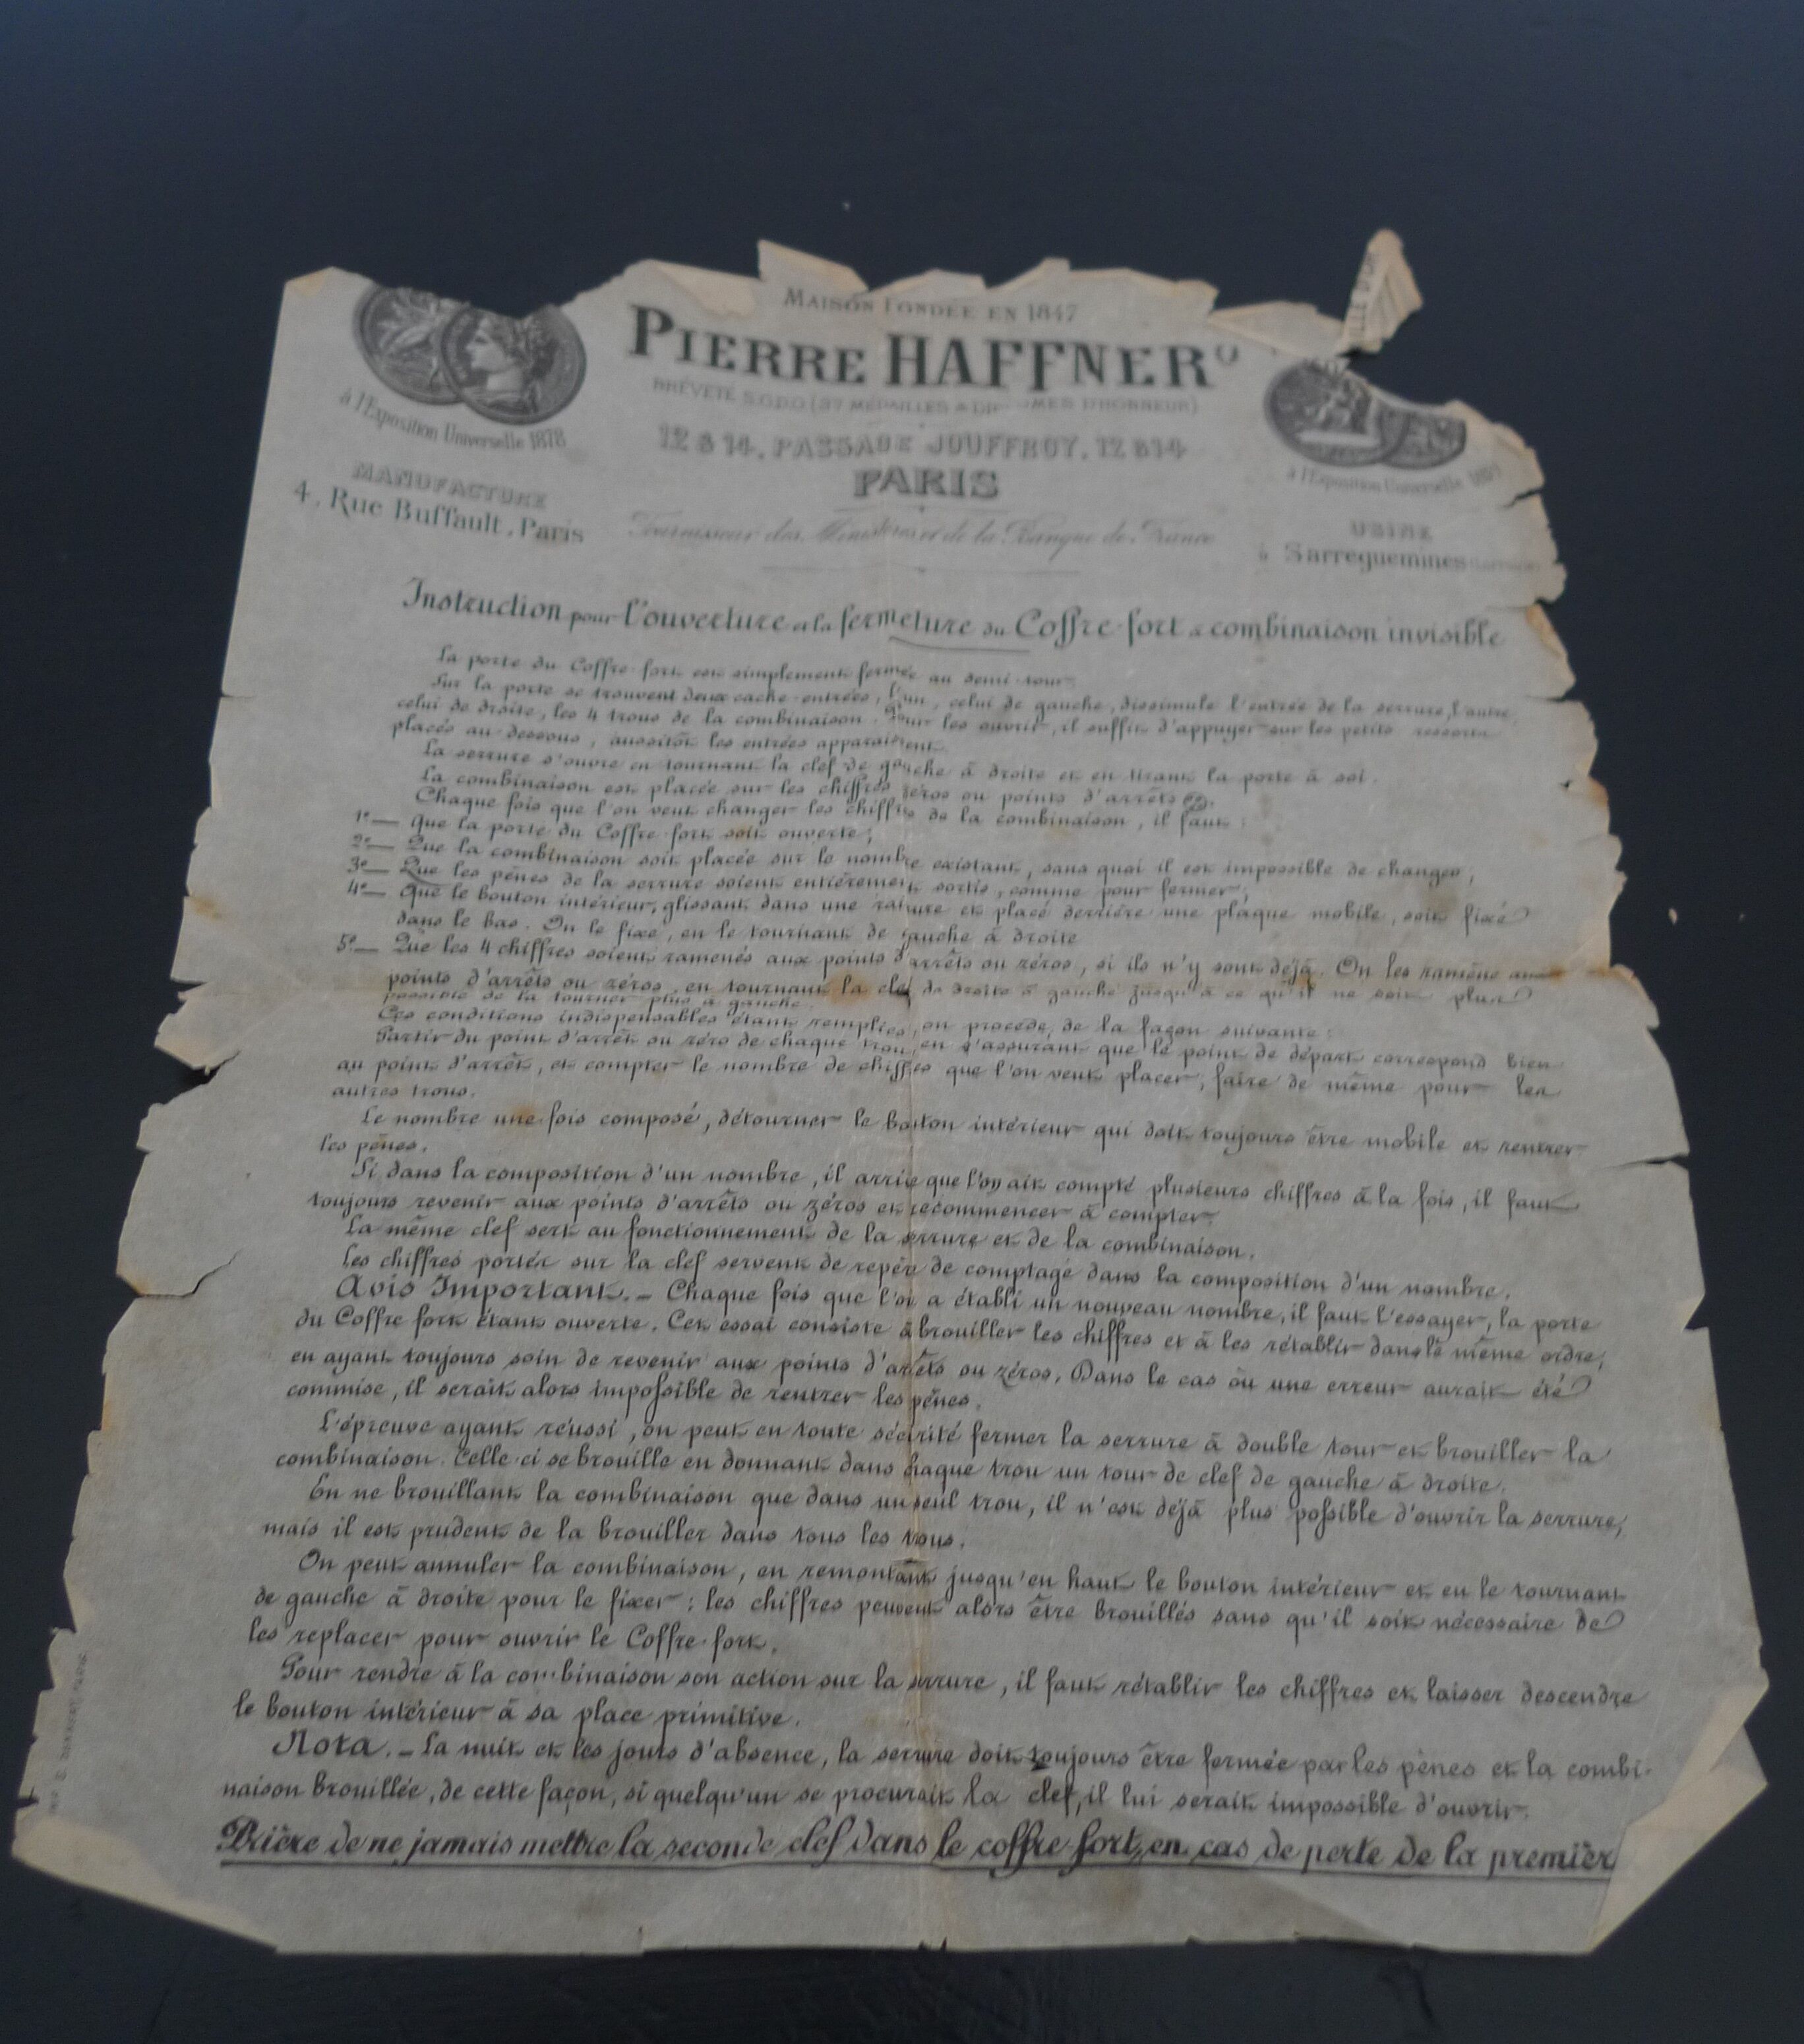 MAISON FONDÉE EN 1847
PIERRE HAFFNER
BREVETÉ S.G.D.G. (37 MÉDAILLES & DIPLOMES D'HONNEUR)
12 & 14, PASSAGE JOUFFROY, 12 & 14
PARIS
Fournisseur des Ministères et de la Banque de France
à l'Exposition Universelle 1878
MANUFACTURE
4, Rue Buffault, Paris
à l'Exposition Universelle
USINE
à Sarreguemines
Instruction pour l'ouverture et la fermeture du Coffre-fort à combinaison invisible
La porte du Coffre-fort est simplement fermée au demi-tour.
Sur la porte se trouvent deux cache-entrées, l'un, celui de gauche, dissimule l'entrée de la serrure, l'autre,
celui de droite, les 4 trous de la combinaison. Pour les ouvrir, il suffit d'appuyer sur les petits ressorts
placés au dessous, aussitôt les entrées apparaissent.
La serrure s'ouvre en tournant la clef de gauche à droite et en tirant la porte à soi.
La combinaison est placée sur les chiffres zéros ou points d'arrêts
Chaque fois que l'on veut changer les chiffres de la combinaison, il faut :
1º— Que la porte du Coffre-fort soit ouverte ;
2º— Que la combinaison soit placée sur le nombre existant, sans quoi il est impossible de changer ;
3º— Que les pênes de la serrure soient entièrement sortis, comme pour fermer ;
4º— Que le bouton intérieur, glissant dans une rainure et placé derrière une plaque mobile, soit fixé
dans le bas. On le fixe, en le tournant de gauche à droite
5º— Que les 4 chiffres soient ramenés aux points d'arrêts ou zéros, si ils n'y sont déjà. On les ramène aux
points d'arrêts ou zéros, en tournant la clef de droite à gauche jusqu'à ce qu'il ne soit plus
possible de la tourner plus à gauche.
Ces conditions indispensables étant remplies, on procède, de la façon suivante :
Partir du point d'arrêt ou zéro de chaque trou, en s'assurant que le point de départ correspond bien
au point d'arrêt, et compter le nombre de chiffres que l'on veut placer, faire de même pour les
autres trous.
Le nombre une fois composé, détourner le bouton intérieur qui doit toujours être mobile et rentrer
les pênes.
Si dans la composition d'un nombre, il arrive que l'on ait compté plusieurs chiffres à la fois, il faut
toujours revenir aux points d'arrêts ou zéros et recommencer à compter.
La même clef sert au fonctionnement de la serrure et de la combinaison.
Les chiffres portés sur la clef servent de repère de comptage dans la composition d'un nombre.
Avis Important. – Chaque fois que l'on a établi un nouveau nombre, il faut l'essayer, la porte
du Coffre fort étant ouverte. Cet essai consiste à brouiller les chiffres et à les rétablir dans le même ordre,
en ayant toujours soin de revenir aux points d'arrêts ou zéros. Dans le cas où une erreur aurait été
commise, il serait alors impossible de rentrer les pênes.
L'épreuve ayant réussi, on peut en toute sécurité fermer la serrure à double tour et brouiller la
combinaison. Celle-ci se brouille en donnant dans chaque trou un tour de clef de gauche à droite.
En ne brouillant la combinaison que dans un seul trou, il n'est déjà plus possible d'ouvrir la serrure,
mais il est prudent de la brouiller dans tous les trous.
On peut annuler la combinaison, en remontant jusqu'en haut le bouton intérieur et en le tournant
de gauche à droite pour le fixer : les chiffres peuvent alors être brouillés sans qu'il soit nécessaire de
les replacer pour ouvrir le Coffre-fort.
Pour rendre à la combinaison son action sur la serrure, il faut rétablir les chiffres et laisser descendre
le bouton intérieur à sa place primitive.
Nota. – La nuit et les jours d'absence, la serrure doit toujours être fermée par les pênes et la combi-
naison brouillée, de cette façon, si quelqu'un se procurait la clef, il lui serait impossible d'ouvrir.
Prière de ne jamais mettre la seconde clef dans le coffre-fort, en cas de perte de la premièr